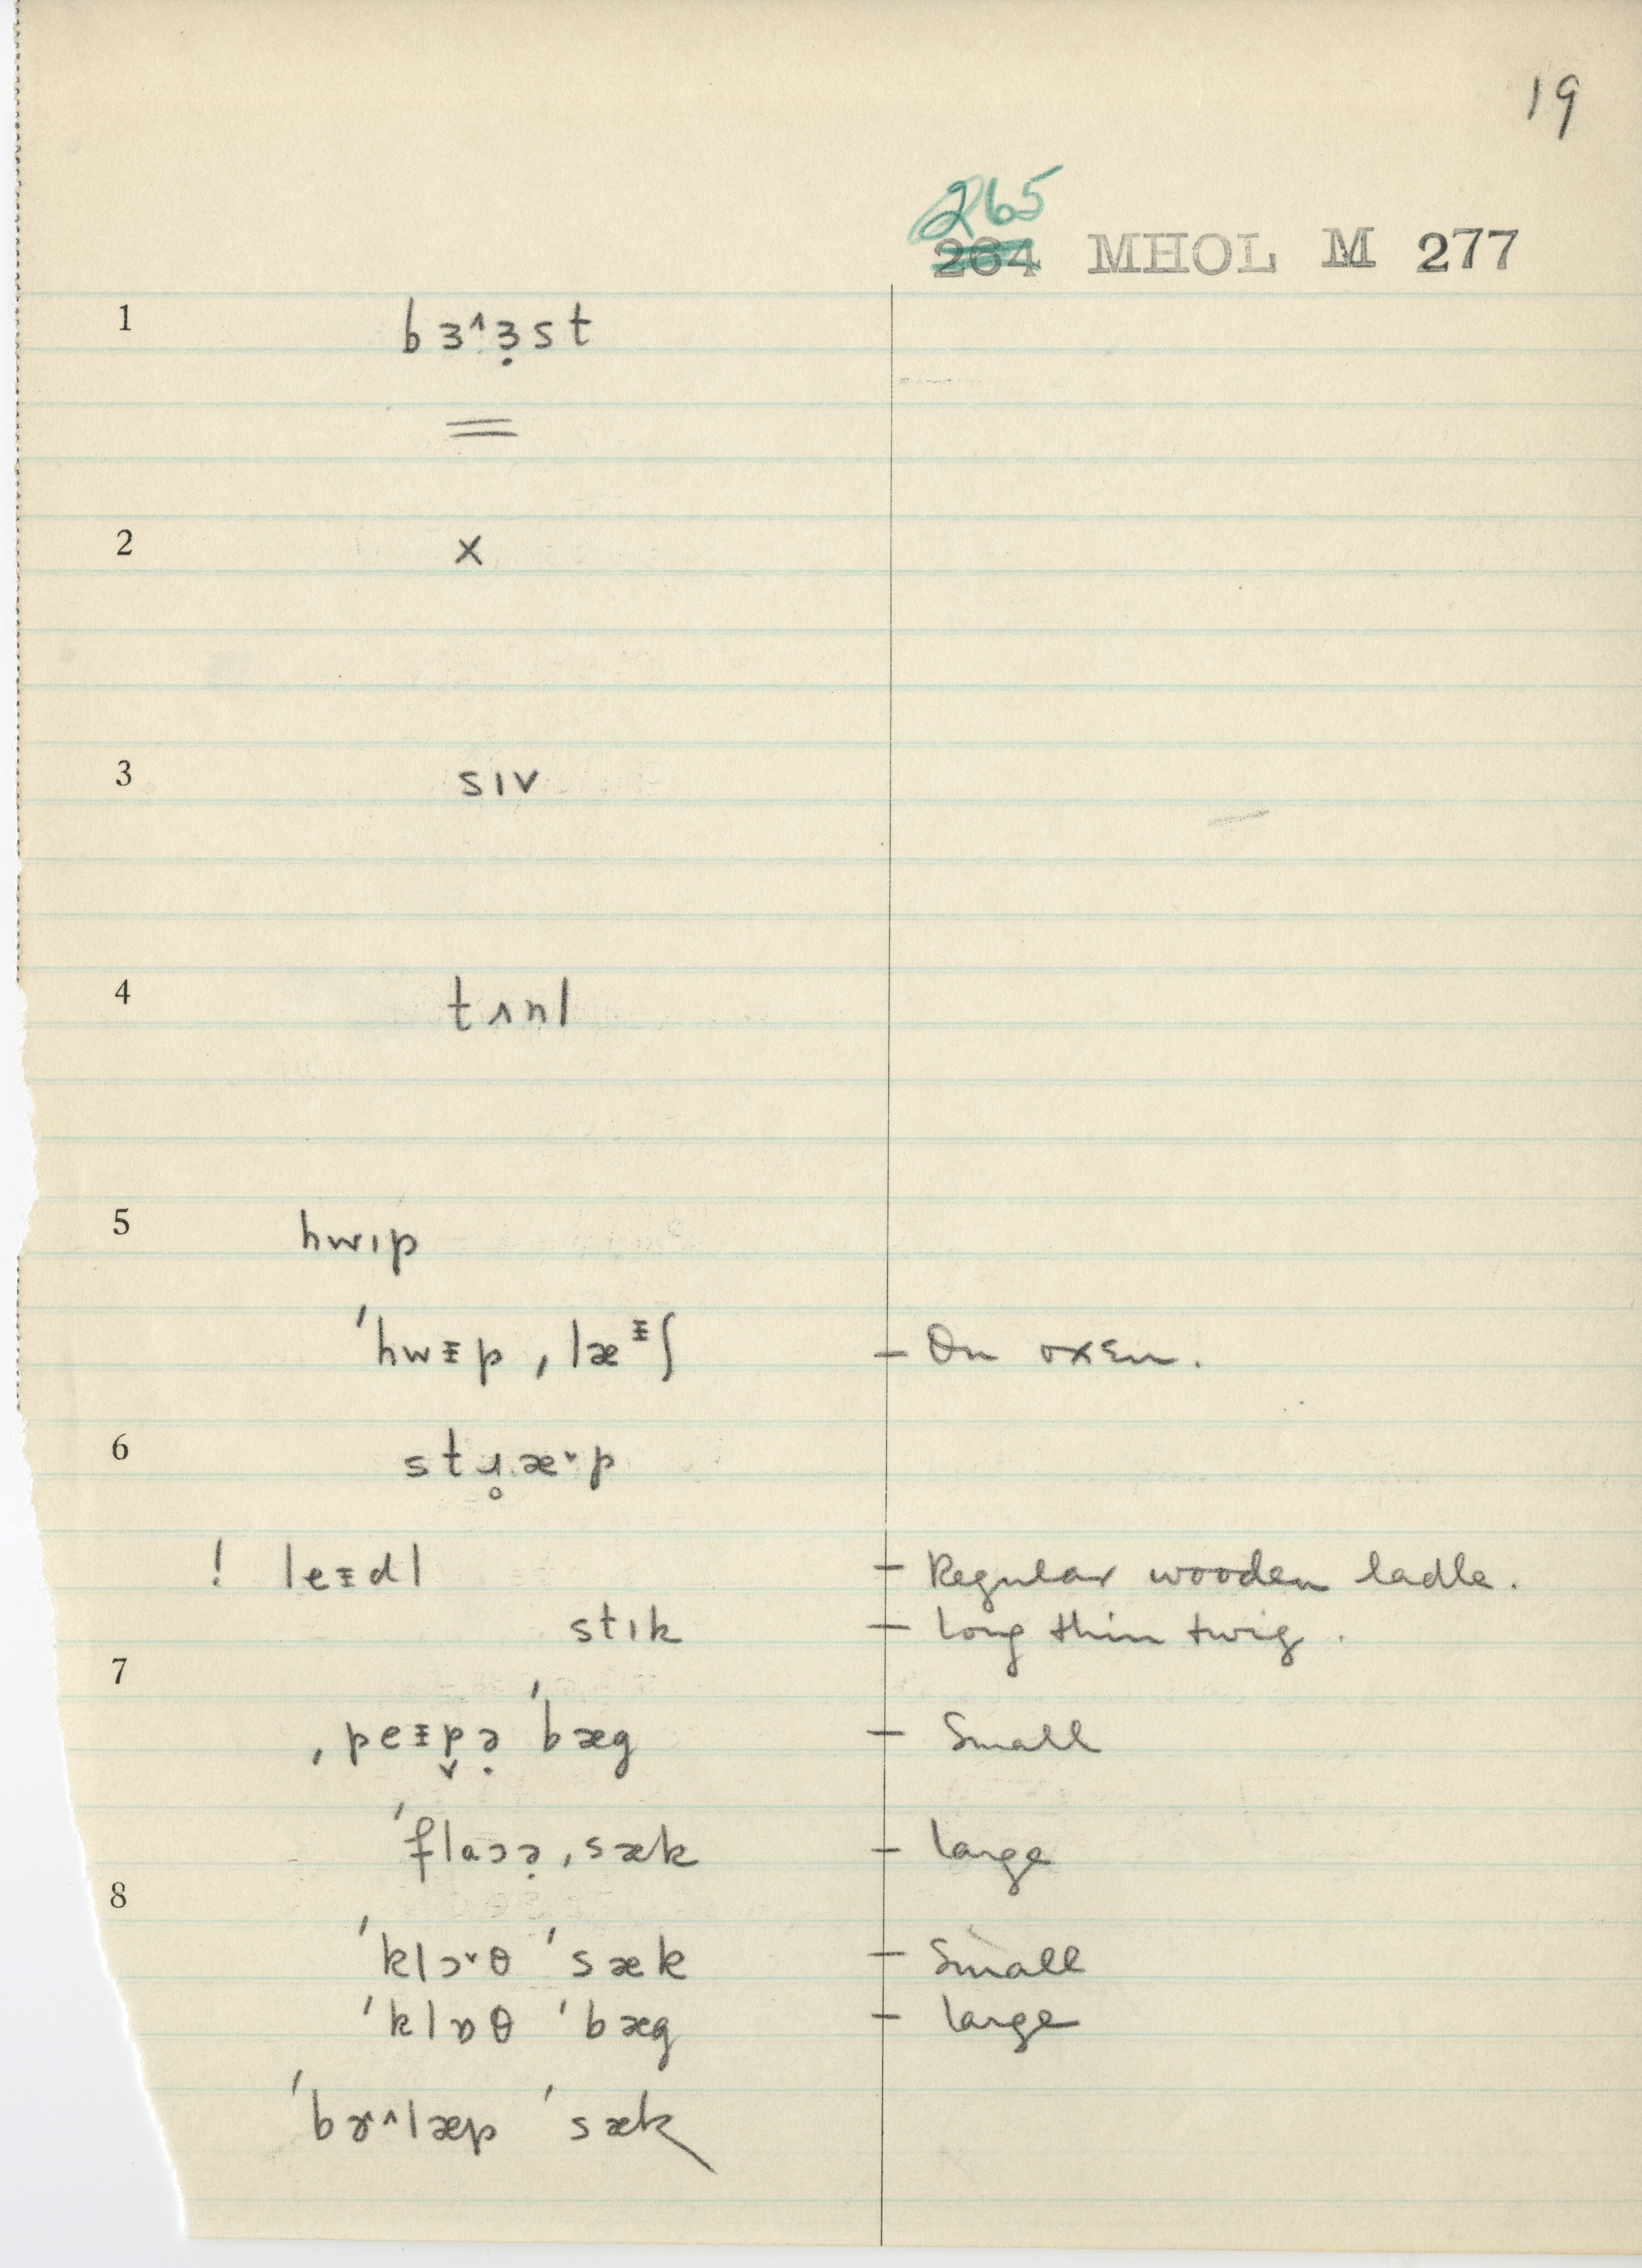 19
265
264 MHOL M 277
1 bɜ˄ɜ̣st
=
2 x
3 sɪv
4 tʌnl
5 hwɪp
ˈhwᵻp ˌlæᵻʃ – On oxen.
6 stɹ̥æ˅p
! leᵻdl – Regular wooden ladle.
stɪk – long thin twig.
7
ˌpeᵻp̬ə̣ ˈbæg – Small
ˈflaɔə̣ ˌsæk – large
8
ˈklɔ˅θ ˈsæk – Small
ˈklɒθ ˈbæg – large
ˈbɚ˄læp ˈsæk